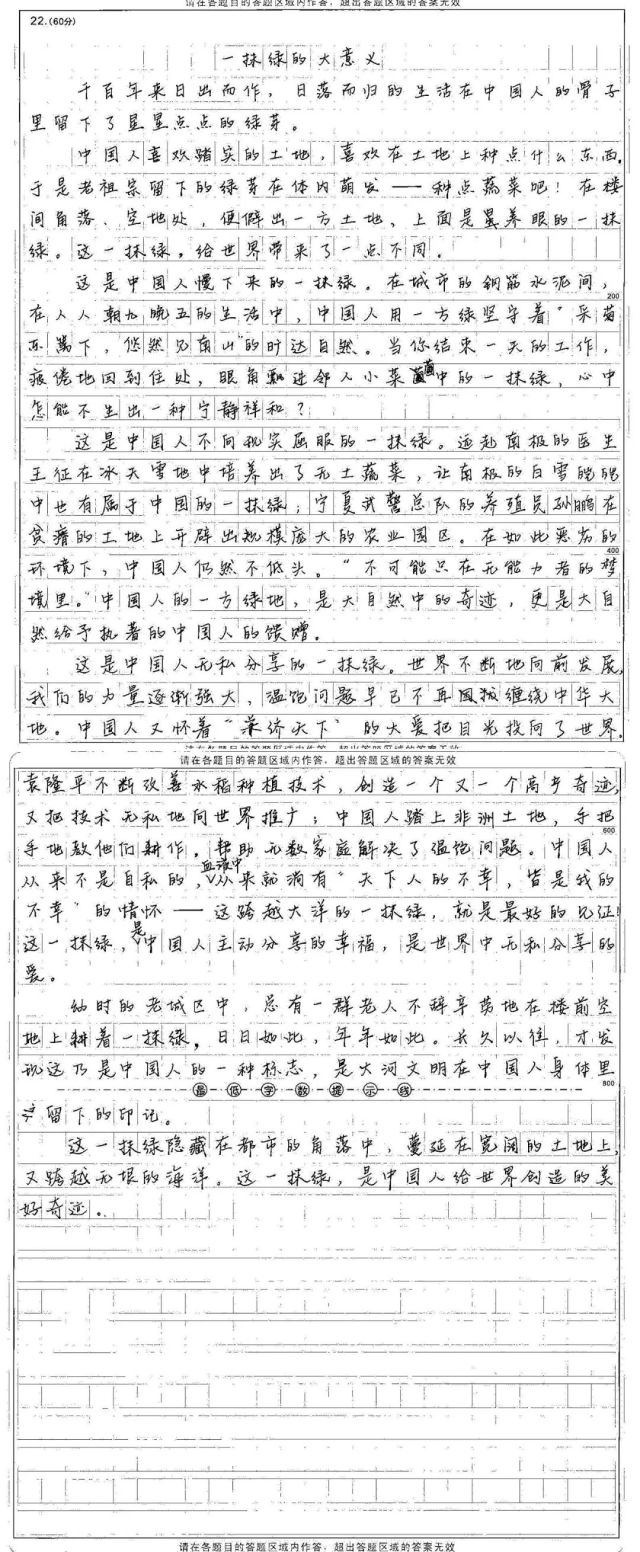 请在各题目的答题区域内作答，超出答题区域的答案无效
22.(60分)
一抹绿的大意义
千百年来日出而作，日落而归的生活在中国人的骨子
里留下了星星点点的绿芽。
中国人喜欢踏实的土地，喜欢在土地上种点什么东西。
于是老祖宗留下的绿芽在体内萌发——种点蔬菜吧！在楼
间角落、空地处，便辟出一方土地，上面是最养眼的一抹
绿。这一抹绿，给世界带来了一点不同。
这是中国人慢下来的一抹绿。在城市的钢筋水泥间，
200
在人人朝九晚五的生活中，中国人用一方绿坚守着“采菊
东篱下，悠然见南山”的旷达自然。当你结束一天的工作，
疲倦地回到住处，眼角飘进邻人小菜园中的一抹绿，心中
怎能不生出一种宁静祥和？
这是中国人不向现实屈服的一抹绿。远赴南极的医生
王征在冰天雪地中培养出了无土蔬菜，让南极的白雪皑皑
中也有属于中国的一抹绿；宁夏武警总队的养殖员孙鹏在
贫瘠的土地上开辟出规模庞大的农业园区。在如此恶劣的
400
环境下，中国人仍然不低头。“不可能只在无能力者的梦
境里。”中国人的一方绿地，是大自然中的奇迹，更是大自
然给予执著的中国人的馈赠。
这是中国人无私分享的一抹绿。世界不断地向前发展，
我们的力量逐渐强大，温饱问题早已不再围拔缠绕中华大
地。中国人又怀着“兼济天下”的大爱把目光投向了世界。
请在各题目的答题区域内作答，超出答题区域的答案无效
请在各题目的答题区域内作答，超出答题区域的答案无效
袁隆平不断改善水稻种植技术，创造一个又一个高产奇迹，
又把技术无私地向世界推广；中国人踏上非洲土地，手把
600
手地教他们耕作，帮助无数家庭解决了温饱问题。中国人
从来不是自私的，血液中从来就淌有“天下人的不幸，皆是我的
不幸”的情怀——这跨越大洋的一抹绿，就是最好的见证！
这一抹绿，是中国人主动分享的幸福，是世界中无私分享的
爱。
幼时的老城区中，总有一群老人不辞辛劳地在楼前空
地上耕着一抹绿，日日如此，年年如此。长久以往，才发
现这乃是中国人的一种标志，是大河文明在中国人身体里
最低字数提示线
800
留下的印记。
这一抹绿隐藏在都市的角落中，蔓延在宽阔的土地上，
又跨越无垠的海洋。这一抹绿，是中国人给世界创造的美
好奇迹。
请在各题目的答题区域内作答，超出答题区域的答案无效